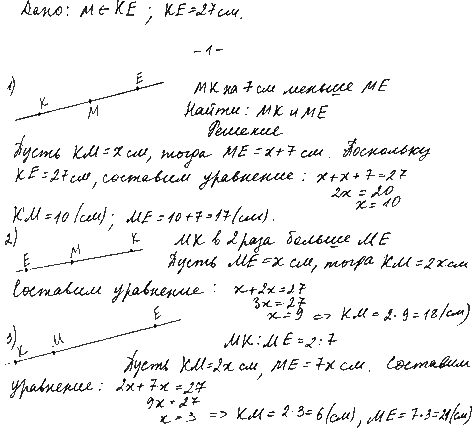 Дано: M ∈ KE ; KE = 27 см.
- 1 -
1) K M E MK на 7 см меньше ME
Найти: MK и ME
Решение
Пусть KM = x см, тогда ME = x + 7 см. Поскольку
KE = 27 см, составим уравнение: x + x + 7 = 27
2x = 20
x = 10
KM = 10 (см); ME = 10 + 7 = 17 (см).
2) E M K MK в 2 раза больше ME
Пусть ME = x см, тогда KM = 2x см
Составим уравнение: x + 2x = 27
3x = 27
x = 9 => KM = 2 · 9 = 18 (см)
3) K M E MK : ME = 2 : 7
Пусть KM = 2x см, ME = 7x см. Составим
уравнение: 2x + 7x = 27
9x = 27
x = 3 => KM = 2 · 3 = 6 (см), ME = 7 · 3 = 21 (см)